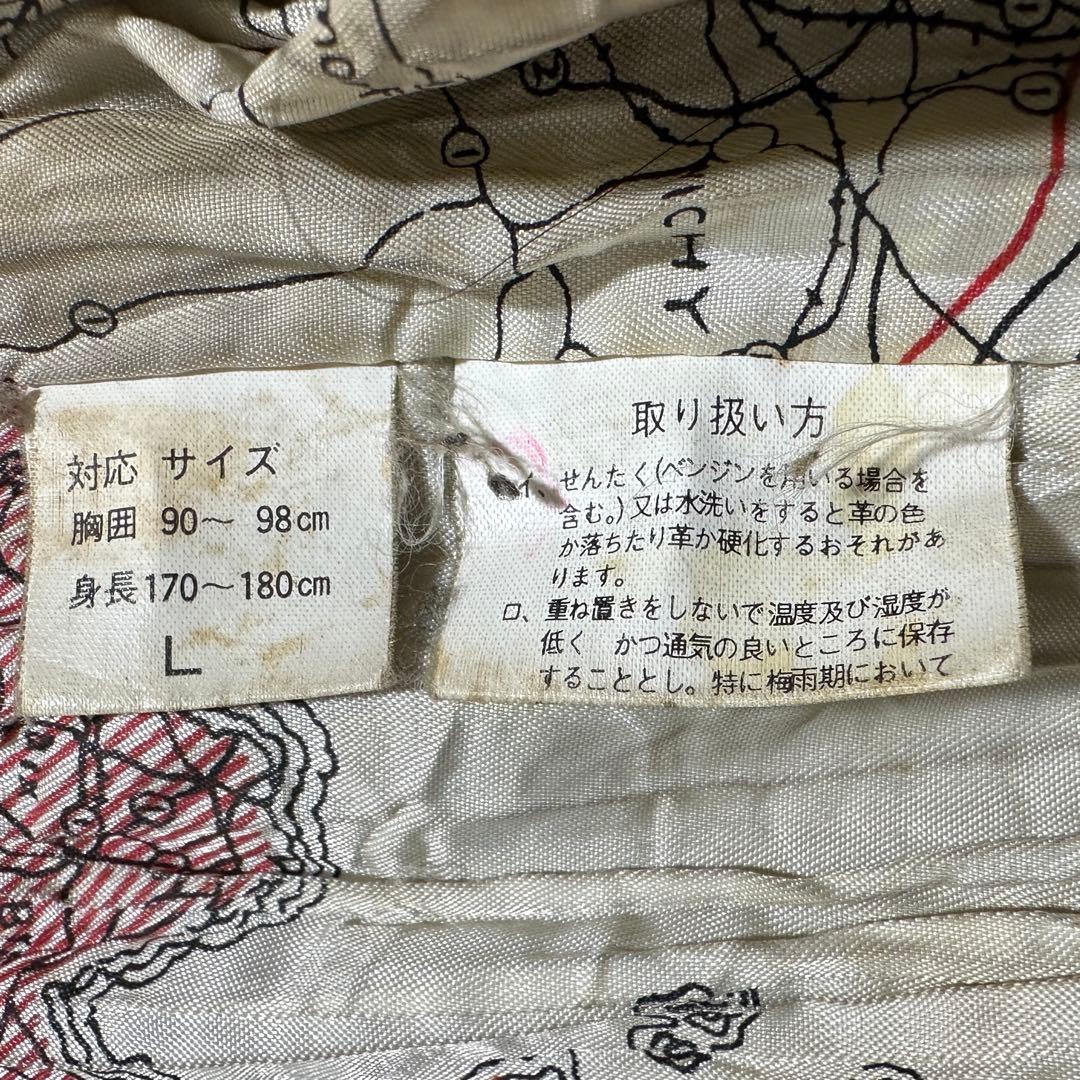 ICHY
対応 サイズ
胸囲 90～ 98cm
身長170～180cm
L
取り扱い方
イ、せんたく(ベンジンを用いる場合を
含む。)又は水洗いをすると革の色
が落ちたり革が硬化するおそれがあ
ります。
ロ、重ね置きをしないで温度及び湿度が
低く かつ通気の良いところに保存
することとし。特に梅雨期において